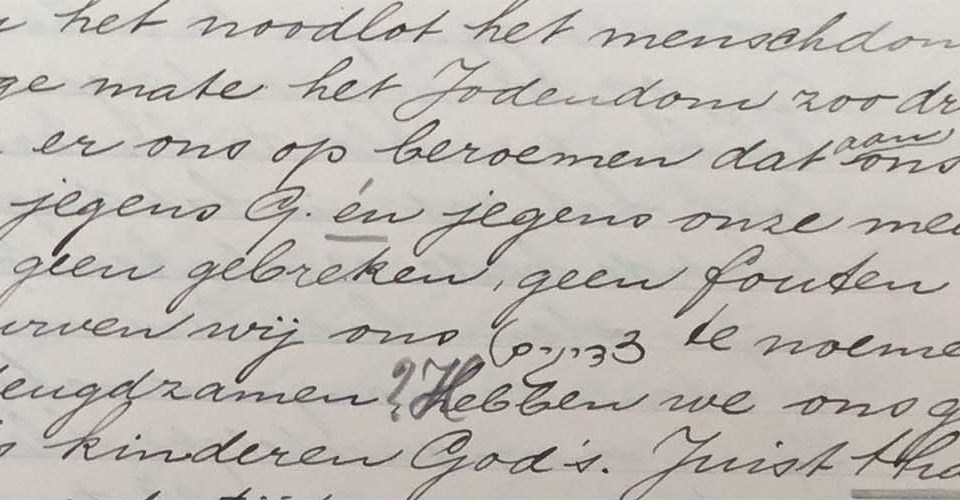 het noodlot het menschdom
ge mate het Jodendom zoo dr
er ons op beroemen dat aan ons
jegens G. én jegens onze me
geen gebreken, geen fouten
urven wij ons צדיקים te noeme
eugdzamen? Hebben we ons g
s kinderen God's. Juist tha